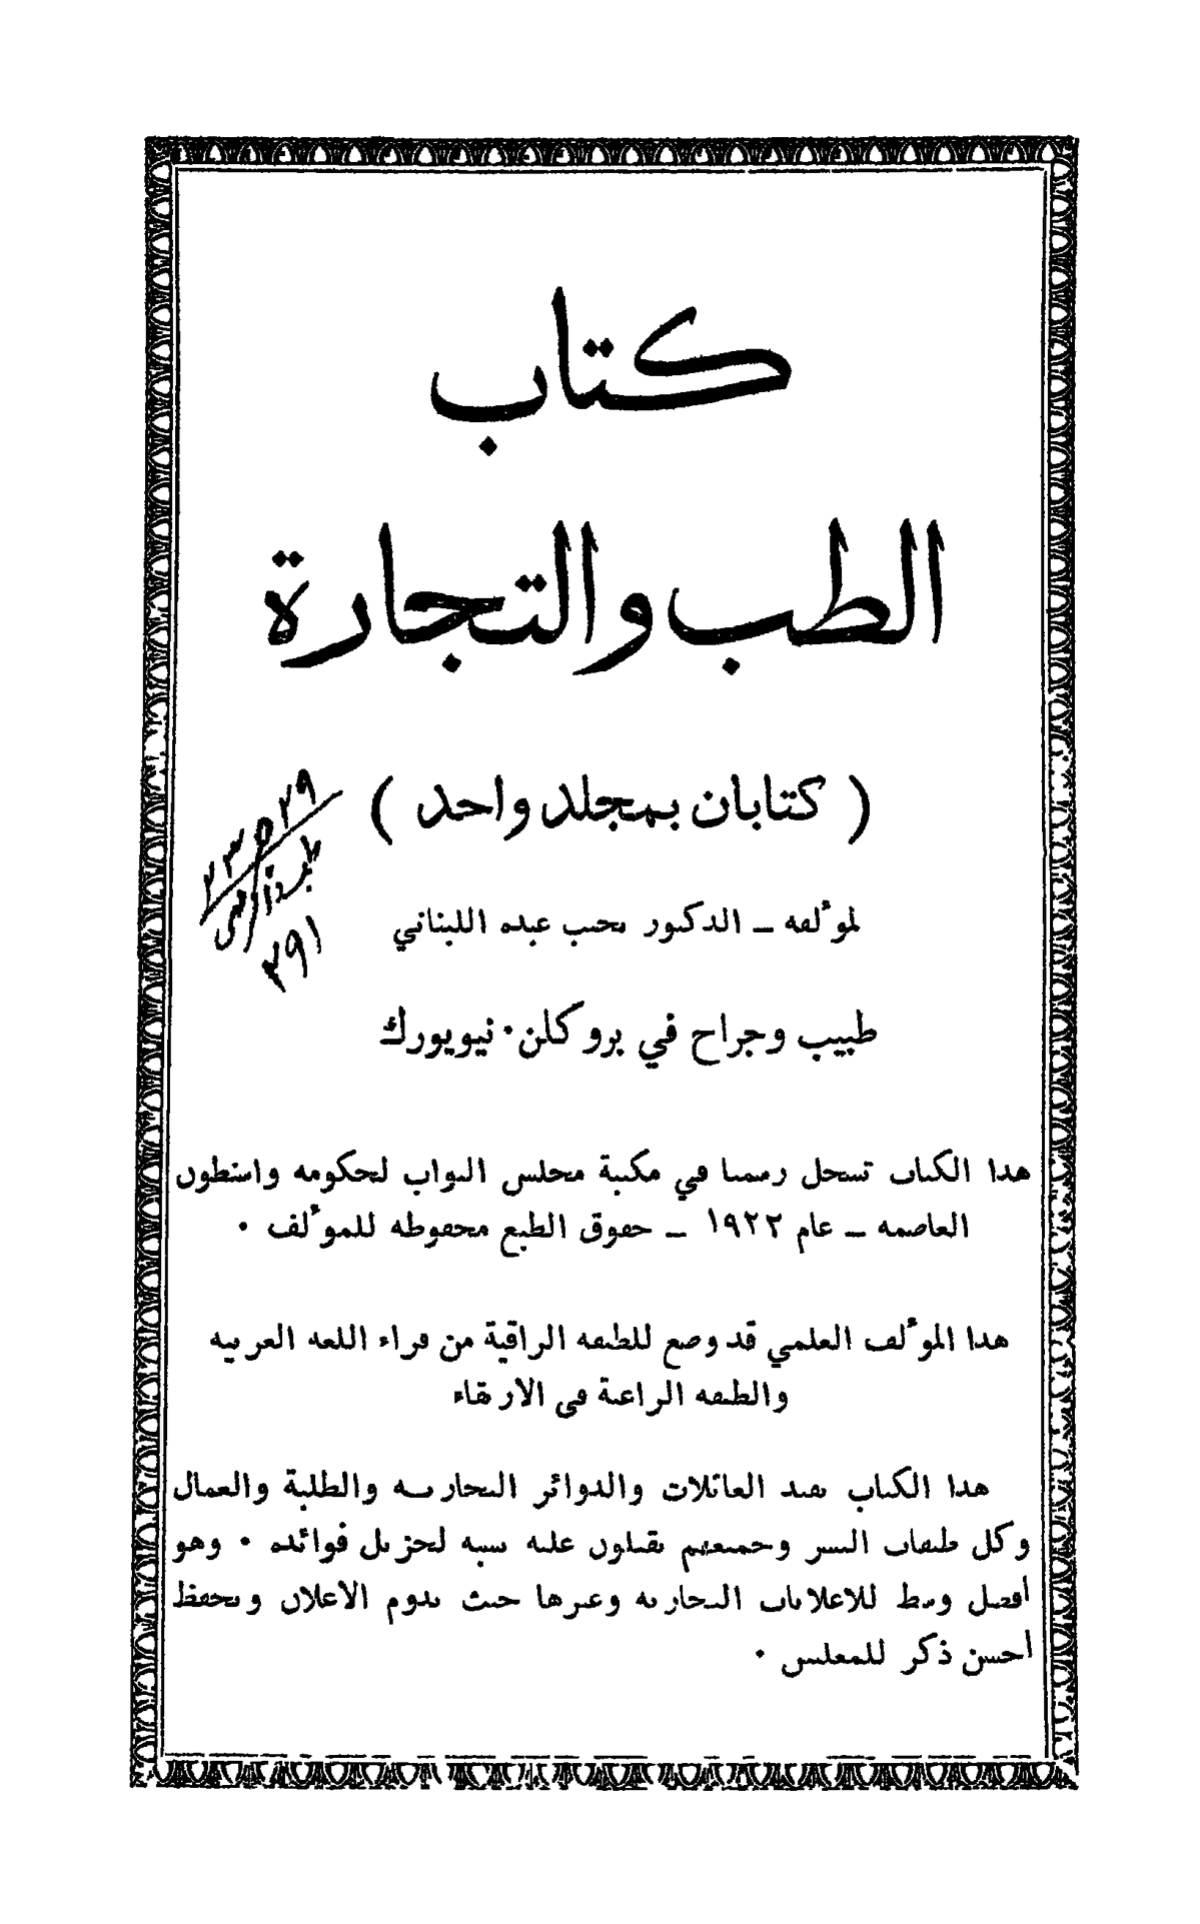 كتاب
الطب والتجارة
( كتابان بمجلد واحد )
لمؤلفه – الدكتور نجيب عبده اللبناني
طبيب وجراح في بروكلن . نيويورك
٢٣٥٢٩
٣٩١
هذا الكتاب تسجل رسميا في مكتبة مجلس النواب لحكومة واشنطون
العاصمة – عام ١٩٢٢ – حقوق الطبع محفوظة للمؤلف .
هذا المؤلف العلمي قد وضع للطبقة الراقية من قراء اللغة العربية
والطبقة الراغبة في الارتقاء
هذا الكتاب يفيد العائلات والدوائر التجارية والطلبة والعمال
وكل طبقات البشر وجميعهم يقبلون عليه نسبة لجزيل فوائده . وهو
أفضل وسط للاعلانات التجارية وغيرها حيث يدوم الاعلان ويحفظ
أحسن ذكر للمعلنين .